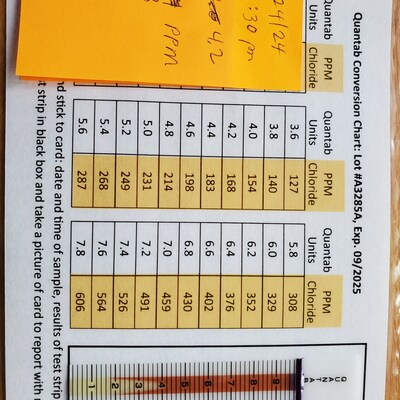 Quantab Conversion Chart: Lot #A3285A, Exp. 09/2025
Quantab Units PPM Chloride
24/24
:30 pm
4.2
PPM
Quantab Units PPM Chloride
3.6 127
3.8 140
4.0 154
4.2 168
4.4 183
4.6 198
4.8 214
5.0 231
5.2 249
5.4 268
5.6 287
Quantab Units PPM Chloride
5.8 308
6.0 329
6.2 352
6.4 376
6.6 402
6.8 430
7.0 459
7.2 491
7.4 526
7.6 564
7.8 606
QUANTAB
9
8
7
6
5
4
3
2
1
nd stick to card: date and time of sample, results of test strip
st strip in black box and take a picture of card to report with